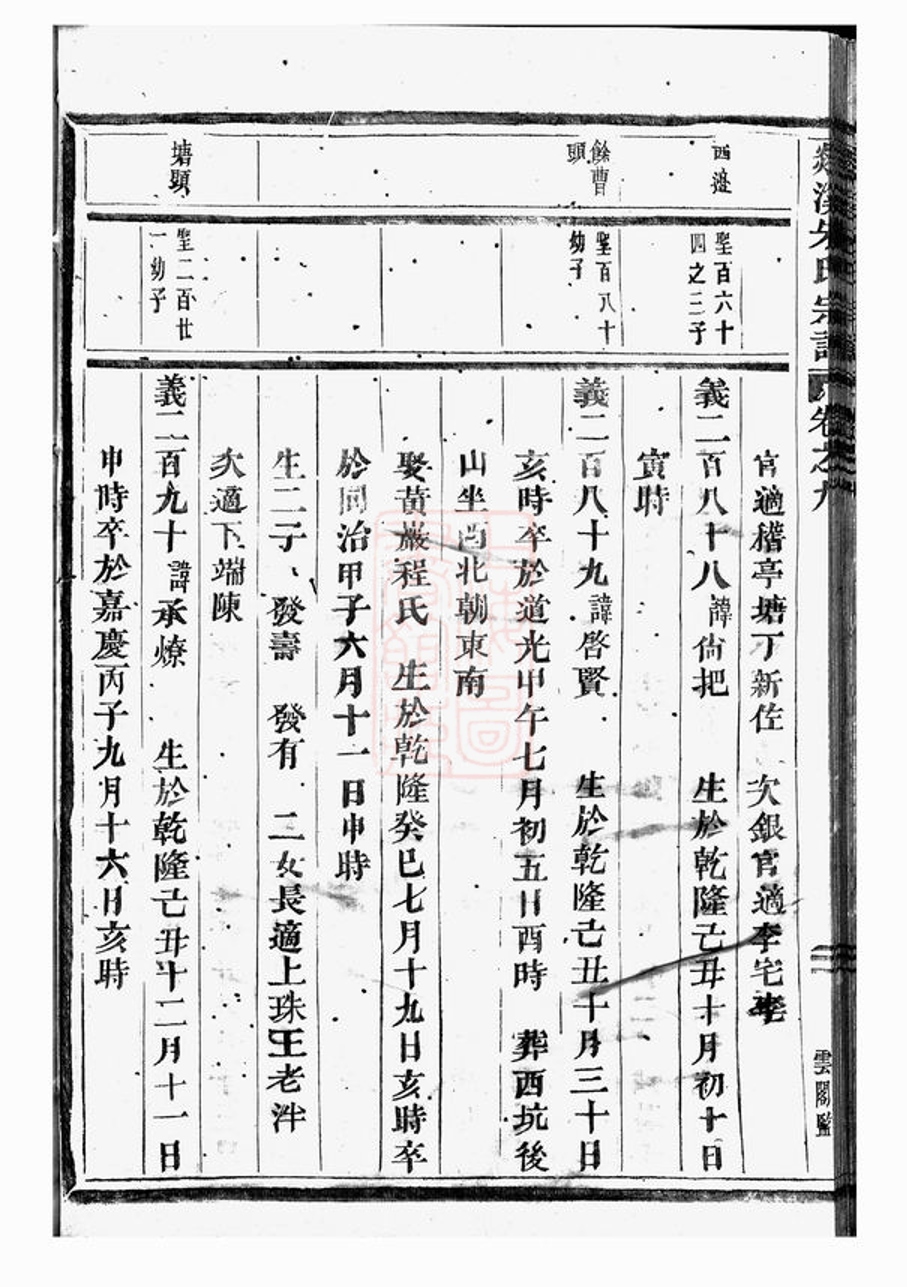 溪朱氏宗譜 卷之九
雲閣監
官適稽亭塘丁新佐 次銀官適李宅李
西邊
聖百六十
四之三子
義二百八十八諱尙把 生於乾隆己丑十月初十日
寅時
餘曹
頭
聖百八十
幼子
義二百八十九諱啓賢 生於乾隆己丑十月三十日
亥時卒於道光甲午七月初五日酉時 葬西坑後
山坐西北朝東南
娶黄巖程氏 生於乾隆癸巳七月十九日亥時卒
於同治甲子六月十一日申時
生二子 發壽 發有 二女長適上珠王老泮
次適下端陳
塘頭
聖二百廿
一幼子
義二百九十諱承燎 生於乾隆己丑十二月十一日
申時卒於嘉慶丙子九月十六日亥時